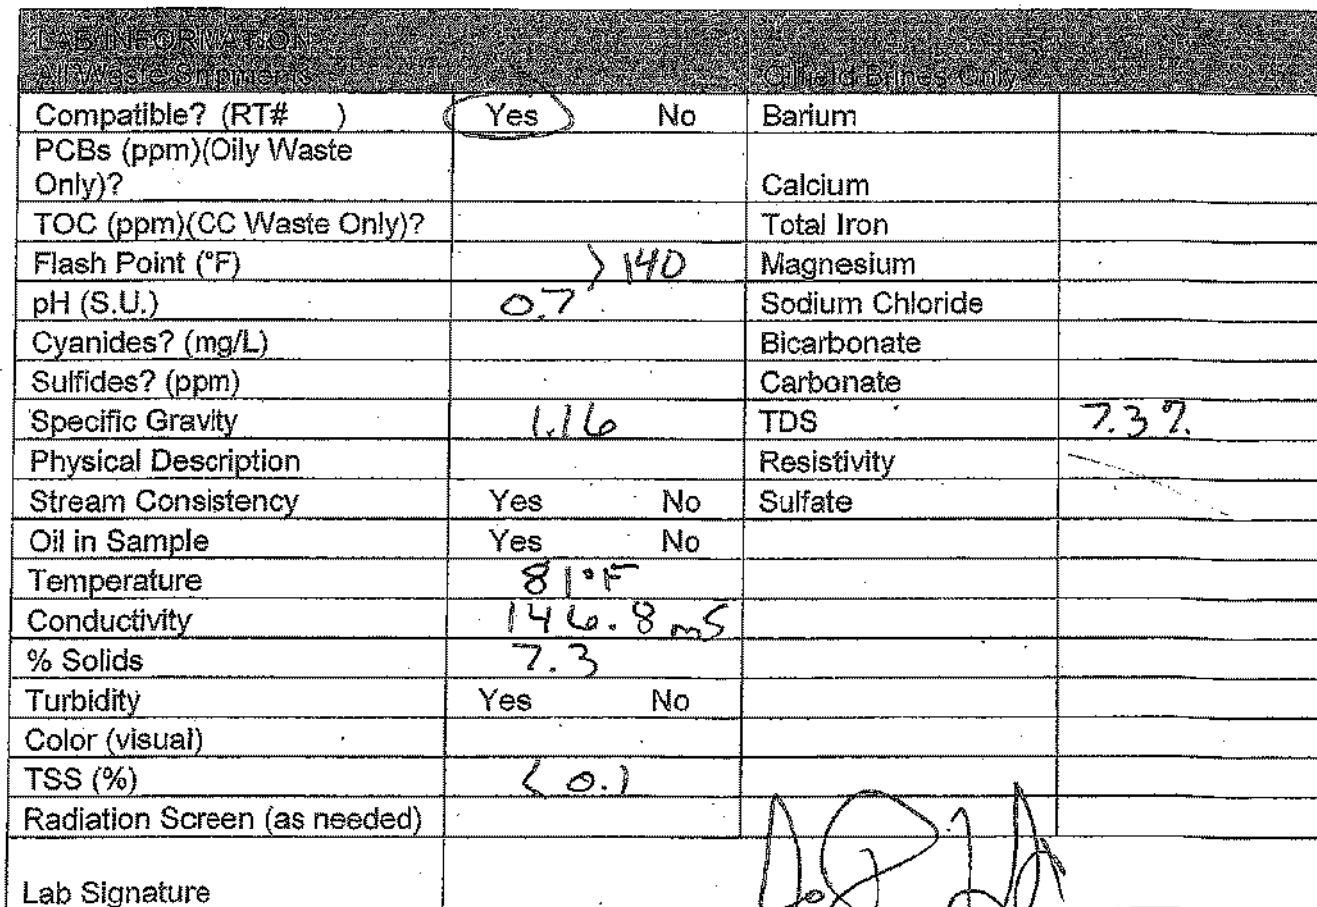 LAB INFORMATION
All Waste Shipments Oilfield Brines Only
Compatible? (RT# ) Yes No Barium
PCBs (ppm)(Oily Waste
Only)? Calcium
TOC (ppm)(CC Waste Only)? Total Iron
Flash Point (°F) >140 Magnesium
pH (S.U.) 0.7 Sodium Chloride
Cyanides? (mg/L) Bicarbonate
Sulfides? (ppm) Carbonate
Specific Gravity 1.16 TDS 7.3%
Physical Description Resistivity
Stream Consistency Yes No Sulfate
Oil in Sample Yes No
Temperature 81°F
Conductivity 146.8 mS
% Solids 7.3
Turbidity Yes No
Color (visual)
TSS (%) <0.1
Radiation Screen (as needed)
Lab Signature